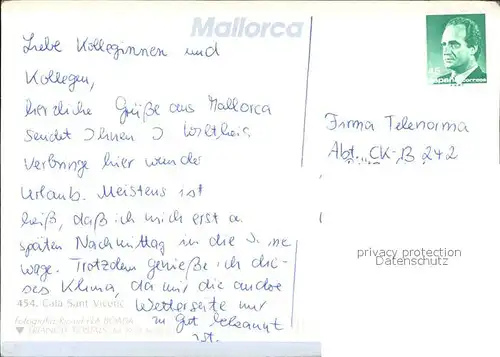 Mallorca
Liebe Kolleginnen und
Kollegen,
herzliche Grüße aus Mallorca
sendet Ihnen
Verbringe hier
Urlaub. Meistens ist es
heiß, daß ich mich erst a
späten Nachmittag in die S ne
wage. Trotzdem genieße ich die-
ses Klima, da mir die andre
Wetterseite nur
zu gut bekannt
ist.
454. Cala Sant Vicenç
45
correos
Firma Telenorma
Abt. CK-B 242
privacy protection
Datenschutz